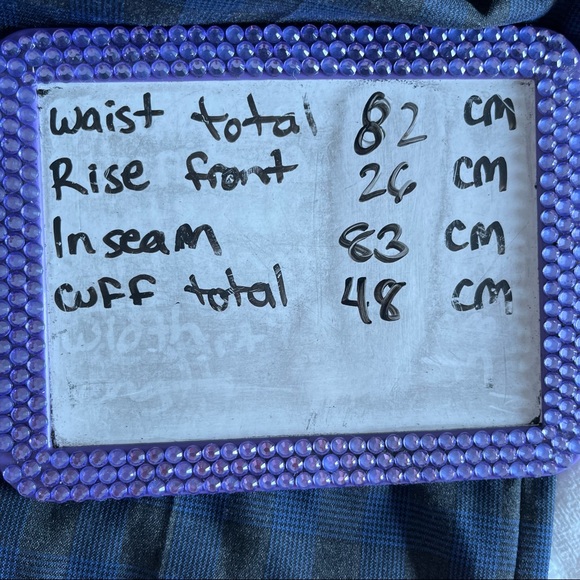 Waist total 82 cm
Rise front 26 cm
Inseam 83 cm
cuff total 48 cm
width